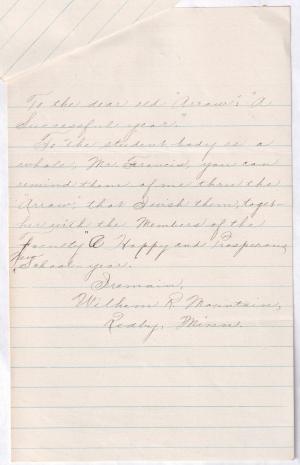 To the dear old "Arrow"; "A
Successful year."
To the student body as a
whole, Mr. Francis, you can
remind them of me thru the
"Arrow" that I wish them, toget-
her with the Members of the
Faculty "A Happy and Prosperous
New School year.
I remain,
William R. Mountain,
Redby, Minn.